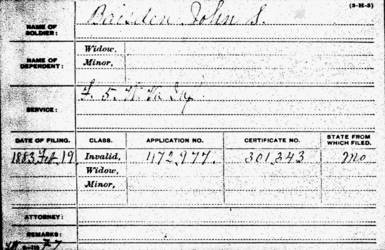 (3-H-5)
NAME OF SOLDIER: John S.
NAME OF DEPENDENT: Widow,
Minor,
SERVICE: F. 5. W. Va Inf.
DATE OF FILING. CLASS. APPLICATION NO. CERTIFICATE NO. STATE FROM WHICH FILED.
1883 Feb 19. Invalid, 472.977. 301.343 Mo
Widow,
Minor,
ATTORNEY:
REMARKS: